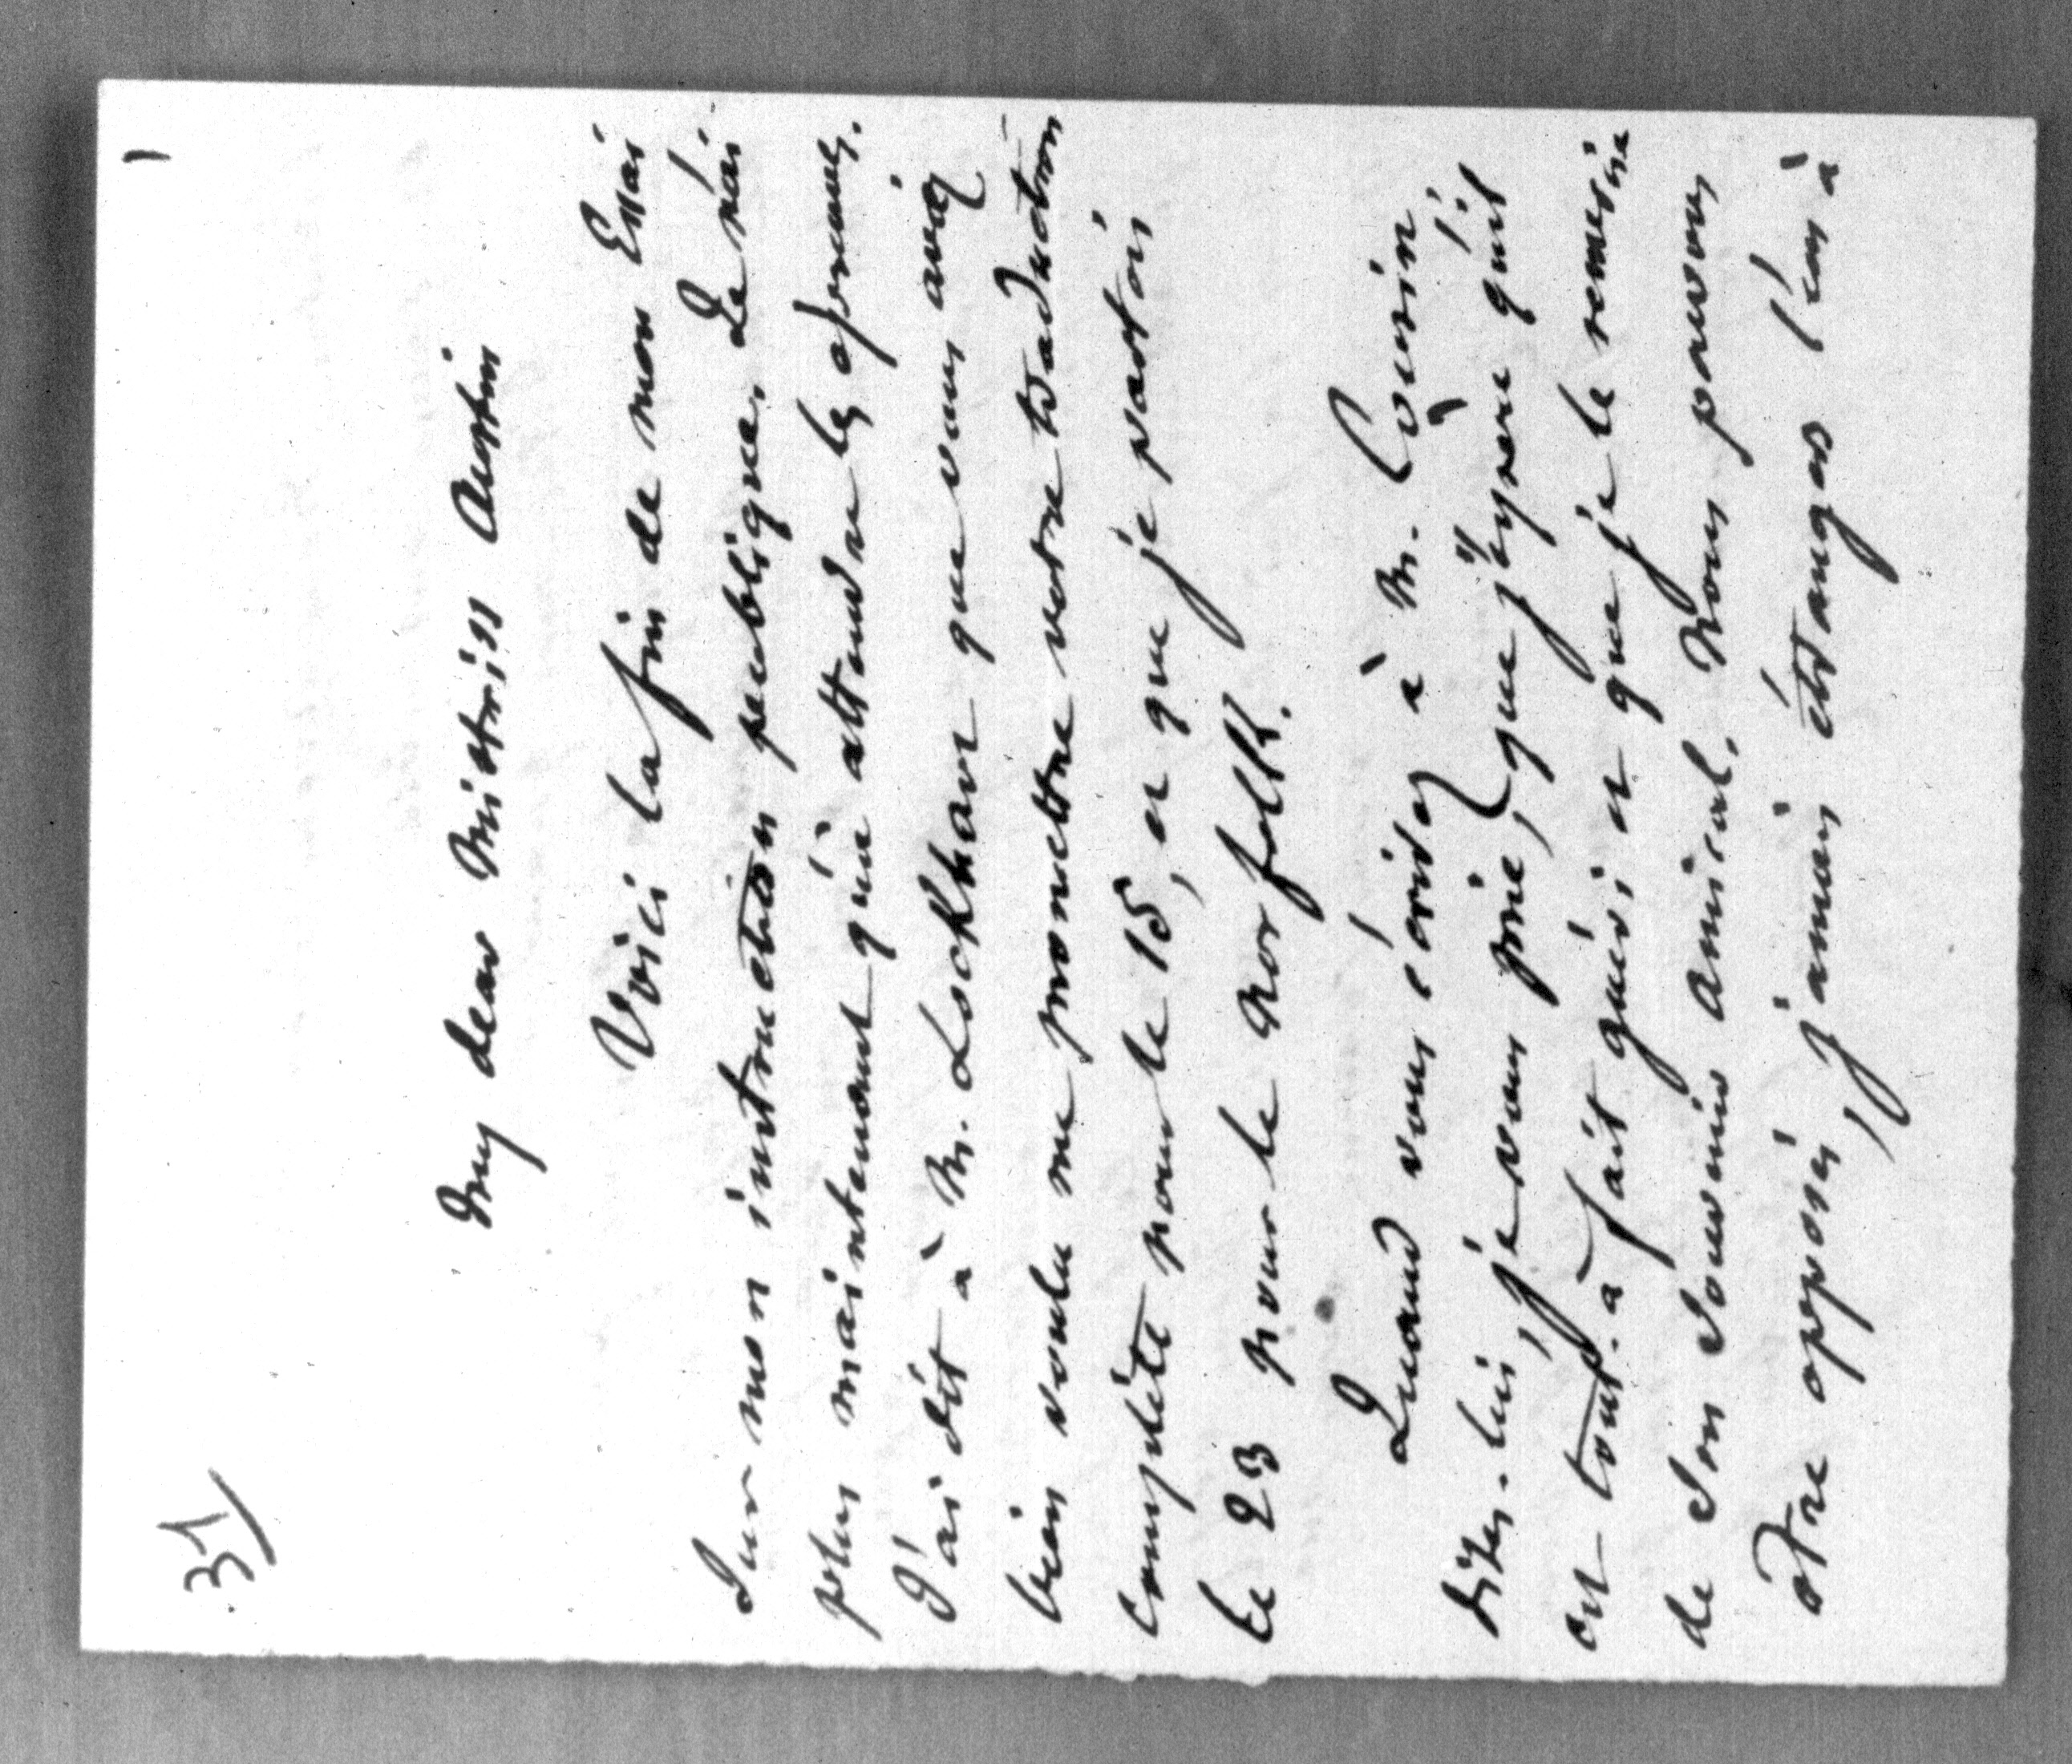 37
1
My dear Mistriss Austin
Voici la fin de mon Essai
Sur mon instruction publique. Je n'ai
plus maintenant qu'à attendre les épreuves.
J'ai dit à M. Lockhart que vous aviez
bien voulu me promettre votre traduction
complète pour le 15, et que je partois
le 23 pour le Norfolk.
Quand vous écrirez à M. Cousin
dites-lui, je vous prie, que j'espère qu'il
est tout-à fait guéri et que je le remercie
de son souvenir amical. Nous pouvons
être opposés, jamais étrangers l'un à